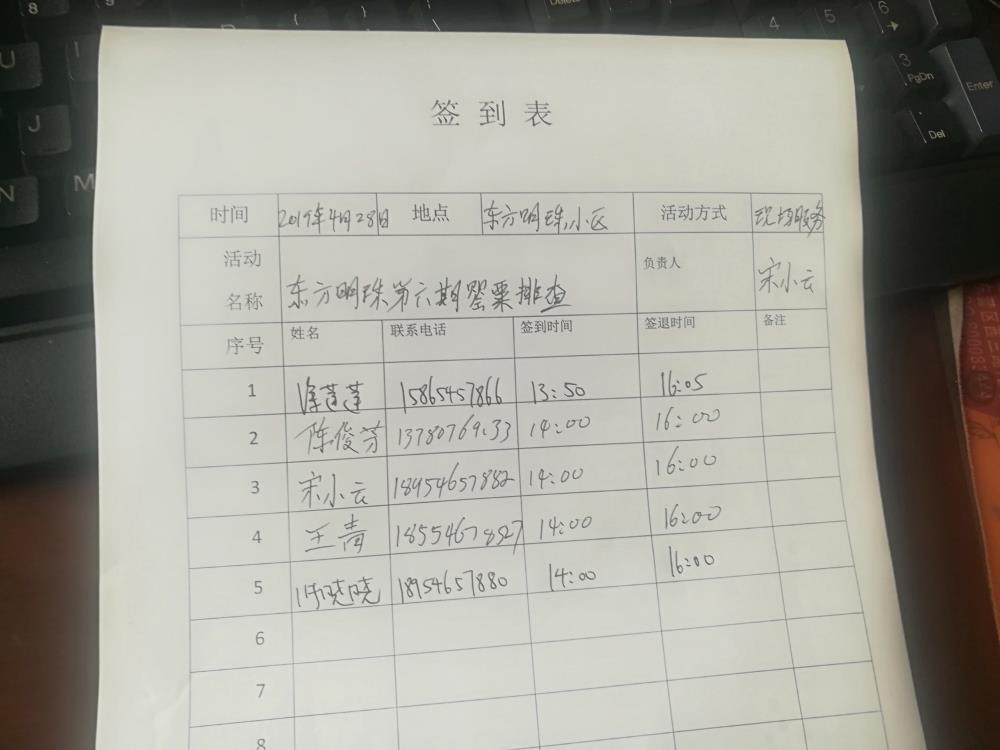 签到表
时间 2019年4月28日 地点 东方明珠小区 活动方式 现场服务
活动名称 东方明珠第六期罂粟排查 负责人 宋小云
序号 姓名 联系电话 签到时间 签退时间 备注
1 徐莲莲 15865457866 13:50 16:05
2 陈俊芳 14:00 16:00
3 宋小云 18954657882 14:00 16:00
4 王青 18554678527 14:00 16:00
5 晓晓 18954657880 14:00 16:00
6
7
8
8
U
J
N
M
4
5
6
3
PgDn
Enter
Del